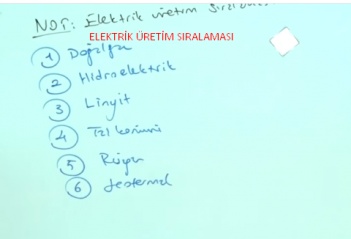 NOT: Elektrik üretim sıralaması
ELEKTRİK ÜRETİM SIRALAMASI
1 Doğalgaz
2 Hidroelektrik
3 Linyit
4 Taş kömürü
5 Rüzgar
6 Jeotermal